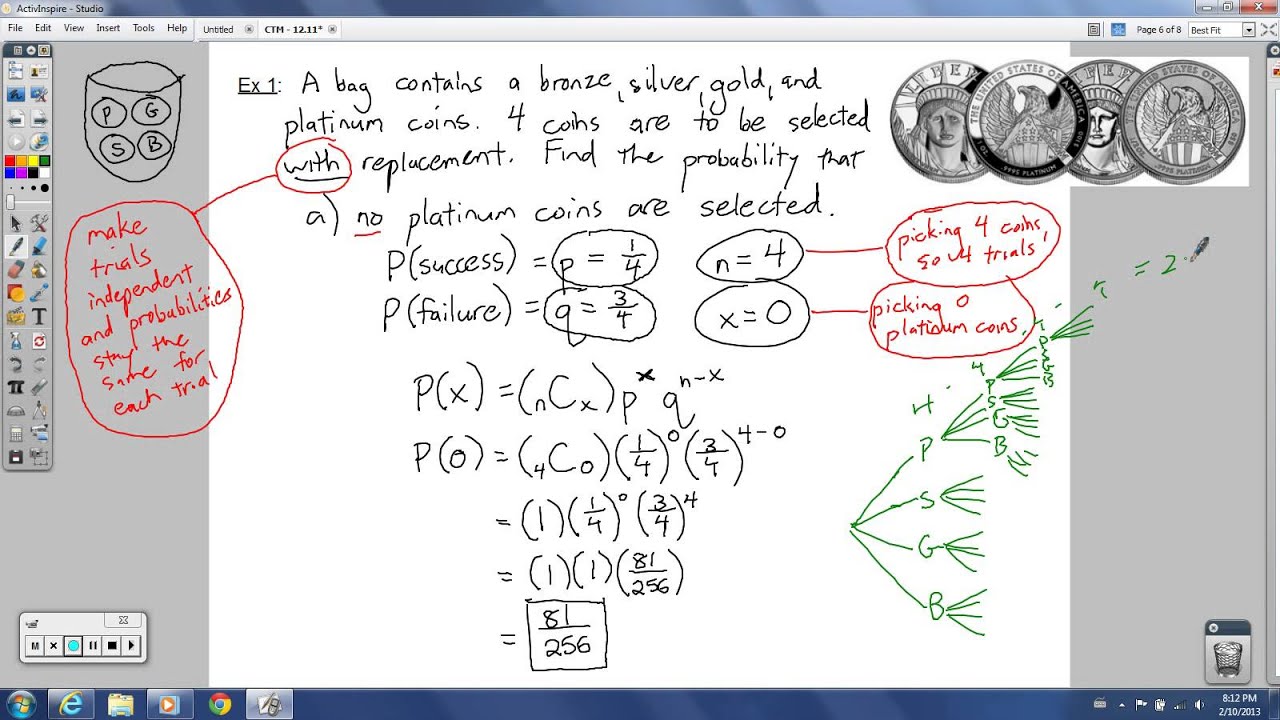 ActivInspire - Studio
File Edit View Insert Tools Help
Untitled
CTM - 12.11*
Page 6 of 8
Best Fit
P G
S B
Ex 1: A bag contains a bronze, silver, gold, and
platinum coins. 4 coins are to be selected
with replacement. Find the probability that
a) no platinum coins are selected.
make
trials
independent
and probabilities
stay the
same for
each trial
P(success) = p = 1/4
n = 4
picking 4 coins,
so 4 trials
P(failure) = q = 3/4
x = 0
picking 0
platinum coins
P(x) = (nCx) p^x q^(n-x)
P(0) = (4C0)(1/4)^0 (3/4)^(4-0)
= (1)(1/4)^0 (3/4)^4
= (1)(1)(81/256)
= 81/256
4 · 4 · 4 · 4 = 2
P
S
G
B
P
S
G
B
P
S
G
B
LIBERTY
THE UNITED STATES OF AMERICA
UNITED STATES OF AMERICA
8:12 PM
2/10/2013